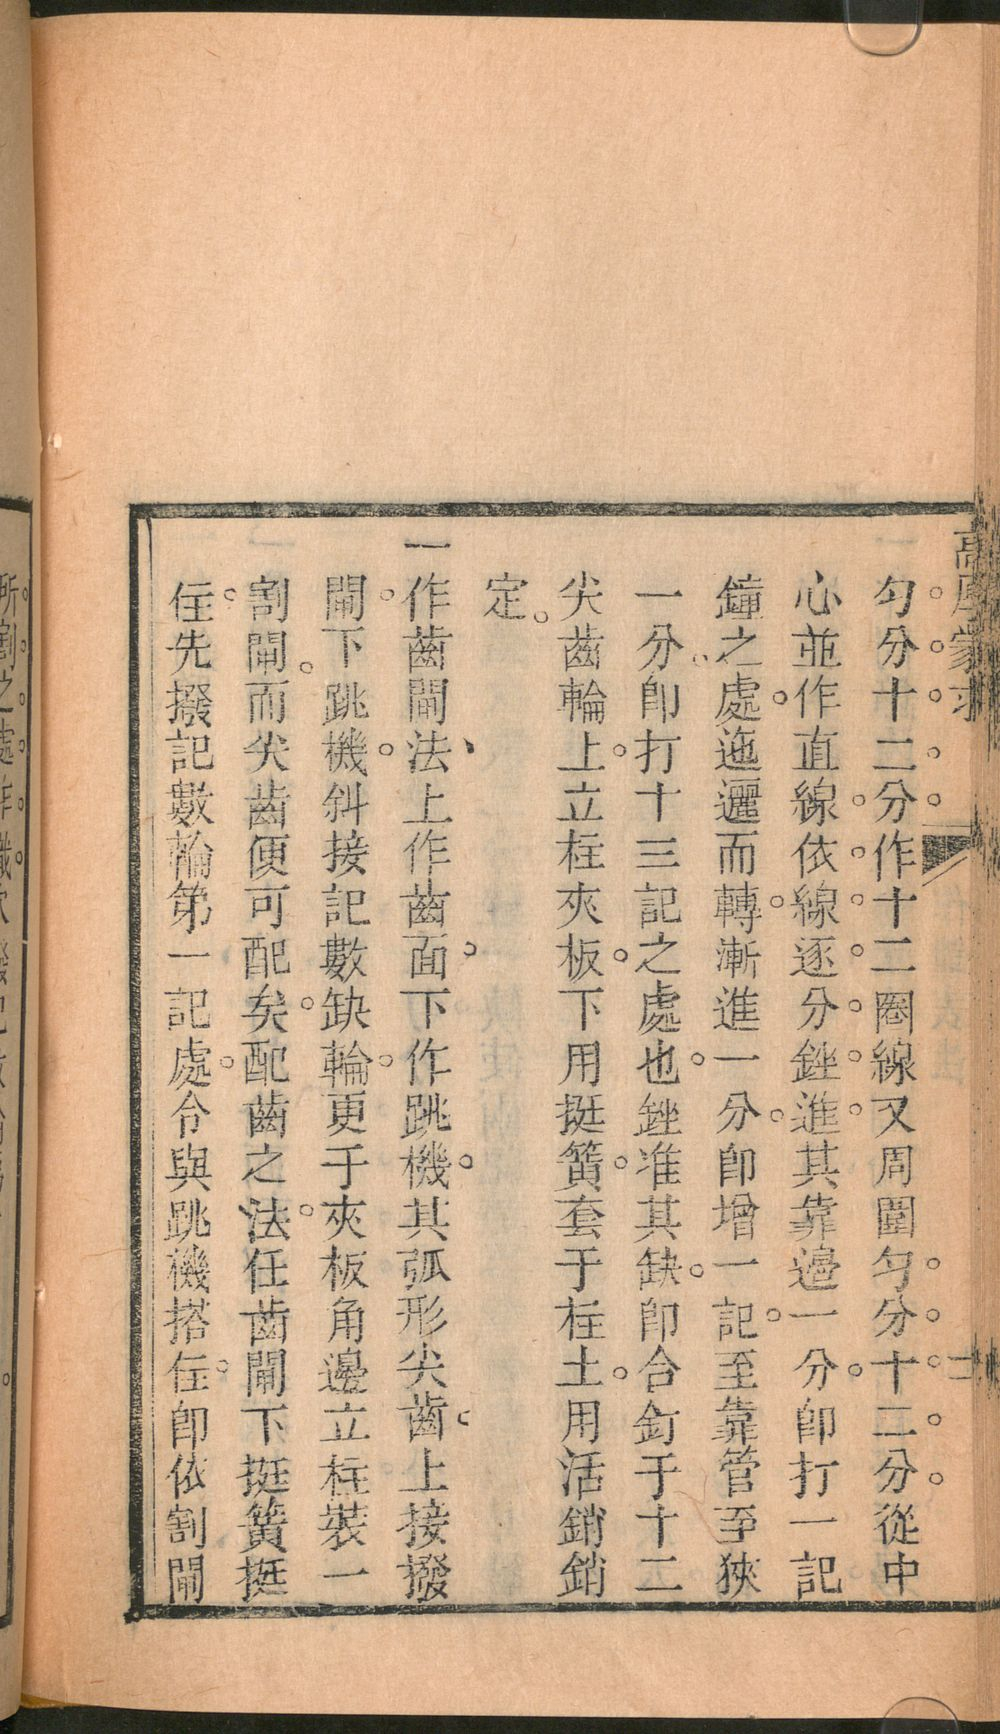 匀分十二分作十二圈線又周圍匀分十二分從中
心並作直線依線逐分銼進其靠邊一分卽打一記
鐘之處迤邐而轉漸進一分卽增一記至靠管至狹
一分卽打十三記之處也銼准其缺卽合釘于十二
尖齒輪上立柱夾板下用挺簧套于柱土用活銷銷
定
一作齒閘法上作齒面下作跳機其弧形尖齒上接撥
閘下跳機斜接記數缺輪更于夾板角邊立柱裝一
割閘而尖齒便可配矣配齒之法任齒閘下挺簧挺
住先撥記數輪第一記處令與跳機搭住卽依割閘